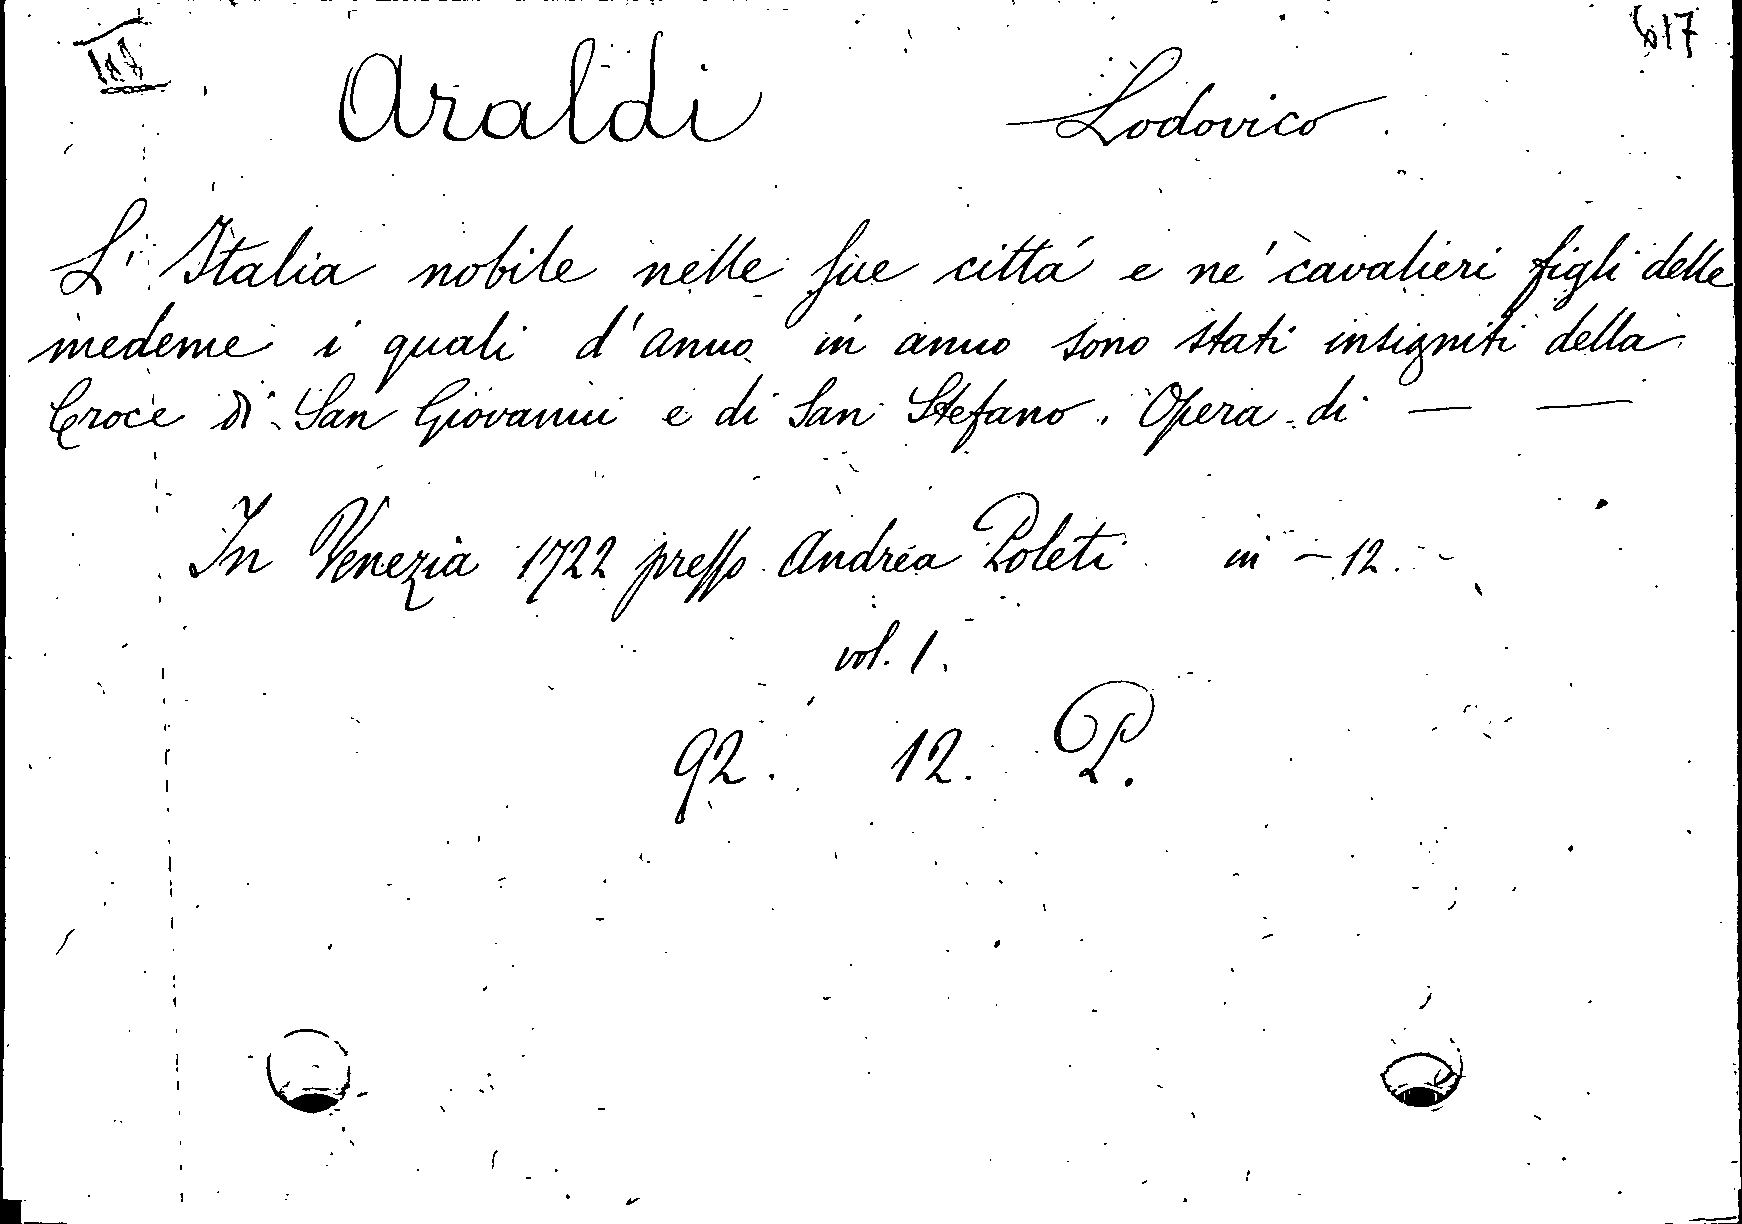 III 617
Araldi Lodovico
L' Italia nobile nelle sue cittá e ne' cavalieri figli delle
medeme i quali d'anno in anno sono stati insigniti della
Croce di San Giovanni e di San Stefano. Opera di — —
In Venezia 1722 presso Andrea Poleti in - 12.
vol. 1.
92. 12. P.